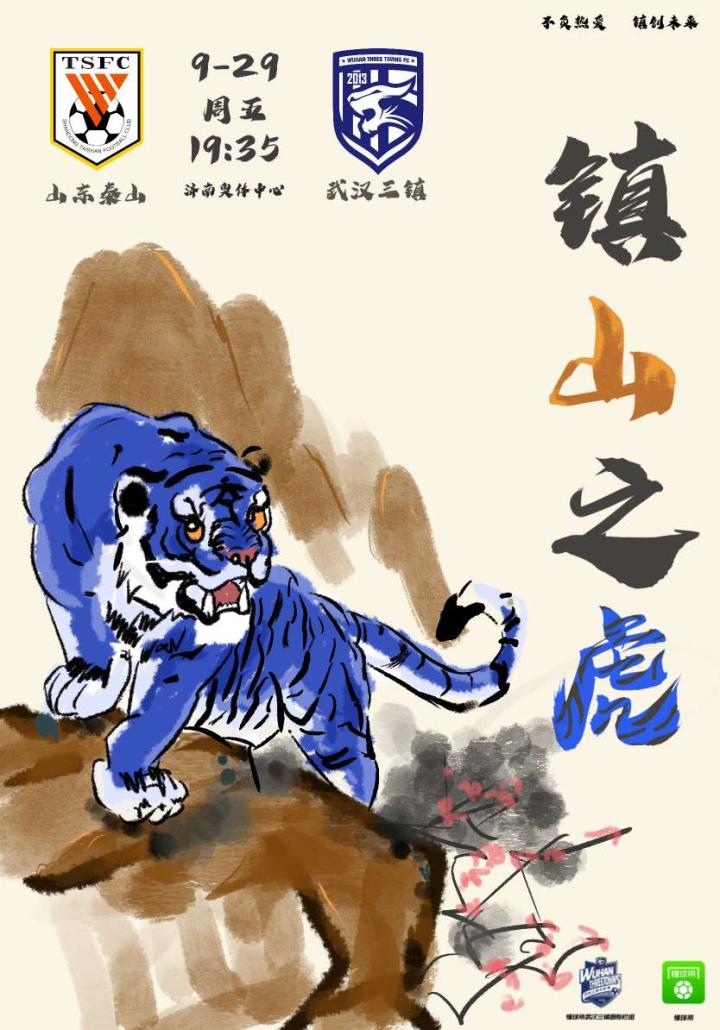 不负热爱 镇创未来
TSFC
SHANDONG TAISHAN FOOTBALL CLUB
山东泰山
9-29
周五
19:35
济南奥体中心
WUHAN THREE TOWNS FC
2013
武汉三镇
镇
山
之
虎
WUHAN
THREETOWNS
懂球帝武汉三镇圈原栏组
懂球帝
懂球帝